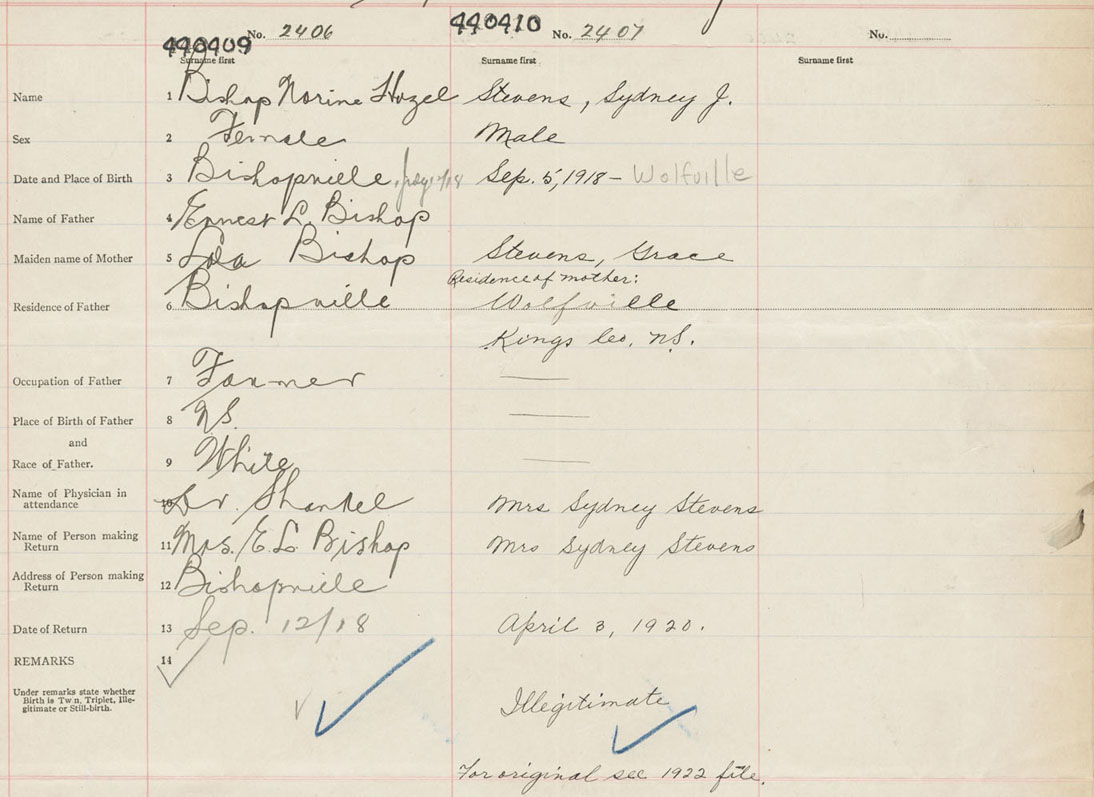 440409 No. 2406 440410 No. 2407 No.
Surname first Surname first Surname first
Name 1 Bishop Norine Hazel Stevens, Sydney J.
Sex 2 Female Male
Date and Place of Birth 3 Bishopville, Sep. 5, 1918 – Wolfville
Name of Father 4 Ernest L. Bishop
Maiden name of Mother 5 Lola Bishop Stevens, Grace
Residence of mother:
Residence of Father 6 Bishopville Wolfville
Kings Co. N.S.
Occupation of Father 7 Farmer
Place of Birth of Father 8 N.S.
and
Race of Father. 9 White
Name of Physician in
attendance 10 Dr. Mrs Sydney Stevens
Name of Person making
Return 11 Mrs. E. L. Bishop Mrs Sydney Stevens
Address of Person making
Return 12 Bishopville
Date of Return 13 Sep. 12/18 April 3, 1920.
REMARKS 14
Under remarks state whether
Birth is Tw n, Triplet, Ille-
gitimate or Still-birth.
Illegitimate
For original see 1922 file.